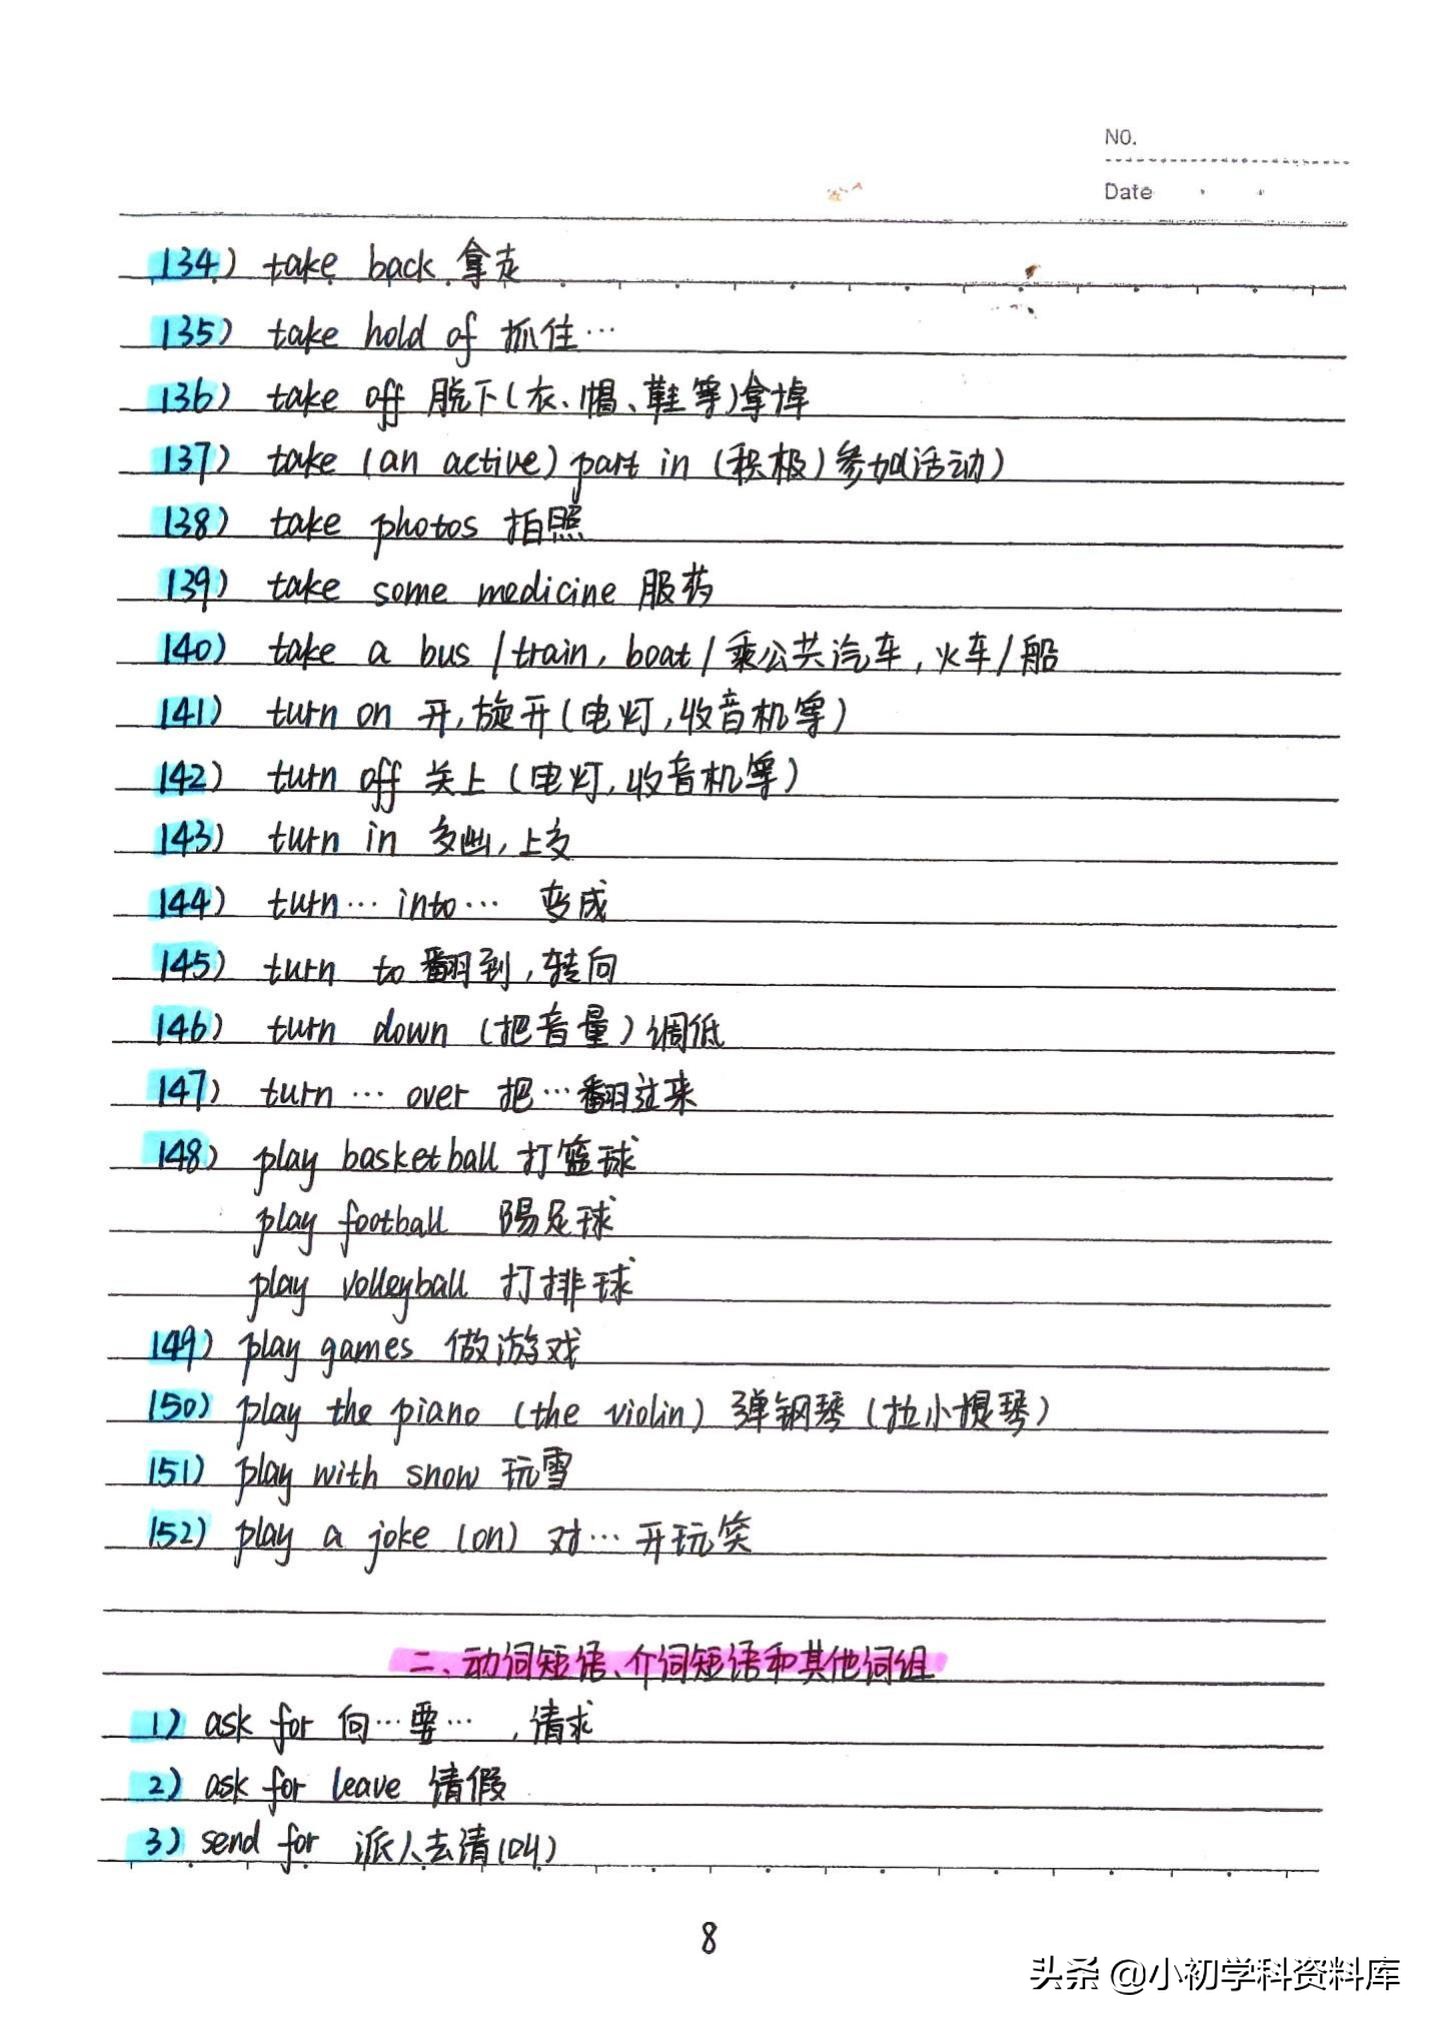 NO.
Date
134) take back 拿走
135) take hold of 抓住…
136) take off 脱下(衣、帽、鞋等)拿掉
137) take (an active) part in (积极)参加(活动)
138) take photos 拍照
139) take some medicine 服药
140) take a bus /train, boat/乘公共汽车,火车/船
141) turn on 开,旋开(电灯,收音机等)
142) turn off 关上(电灯,收音机等)
143) turn in 交出,上交
144) turn…into… 变成
145) turn to 翻到,转向
146) turn down (把音量)调低
147) turn … over 把…翻过来
148) play basketball 打篮球
play football 踢足球
play volleyball 打排球
149) play games 做游戏
150) play the piano (the violin) 弹钢琴(拉小提琴)
151) play with snow 玩雪
152) play a joke (on) 对…开玩笑
二、动词短语、介词短语和其他词组
1) ask for 向…要… ,请求
2) ask for leave 请假
3) send for 派人去请(叫)
8
头条 @小初学科资料库